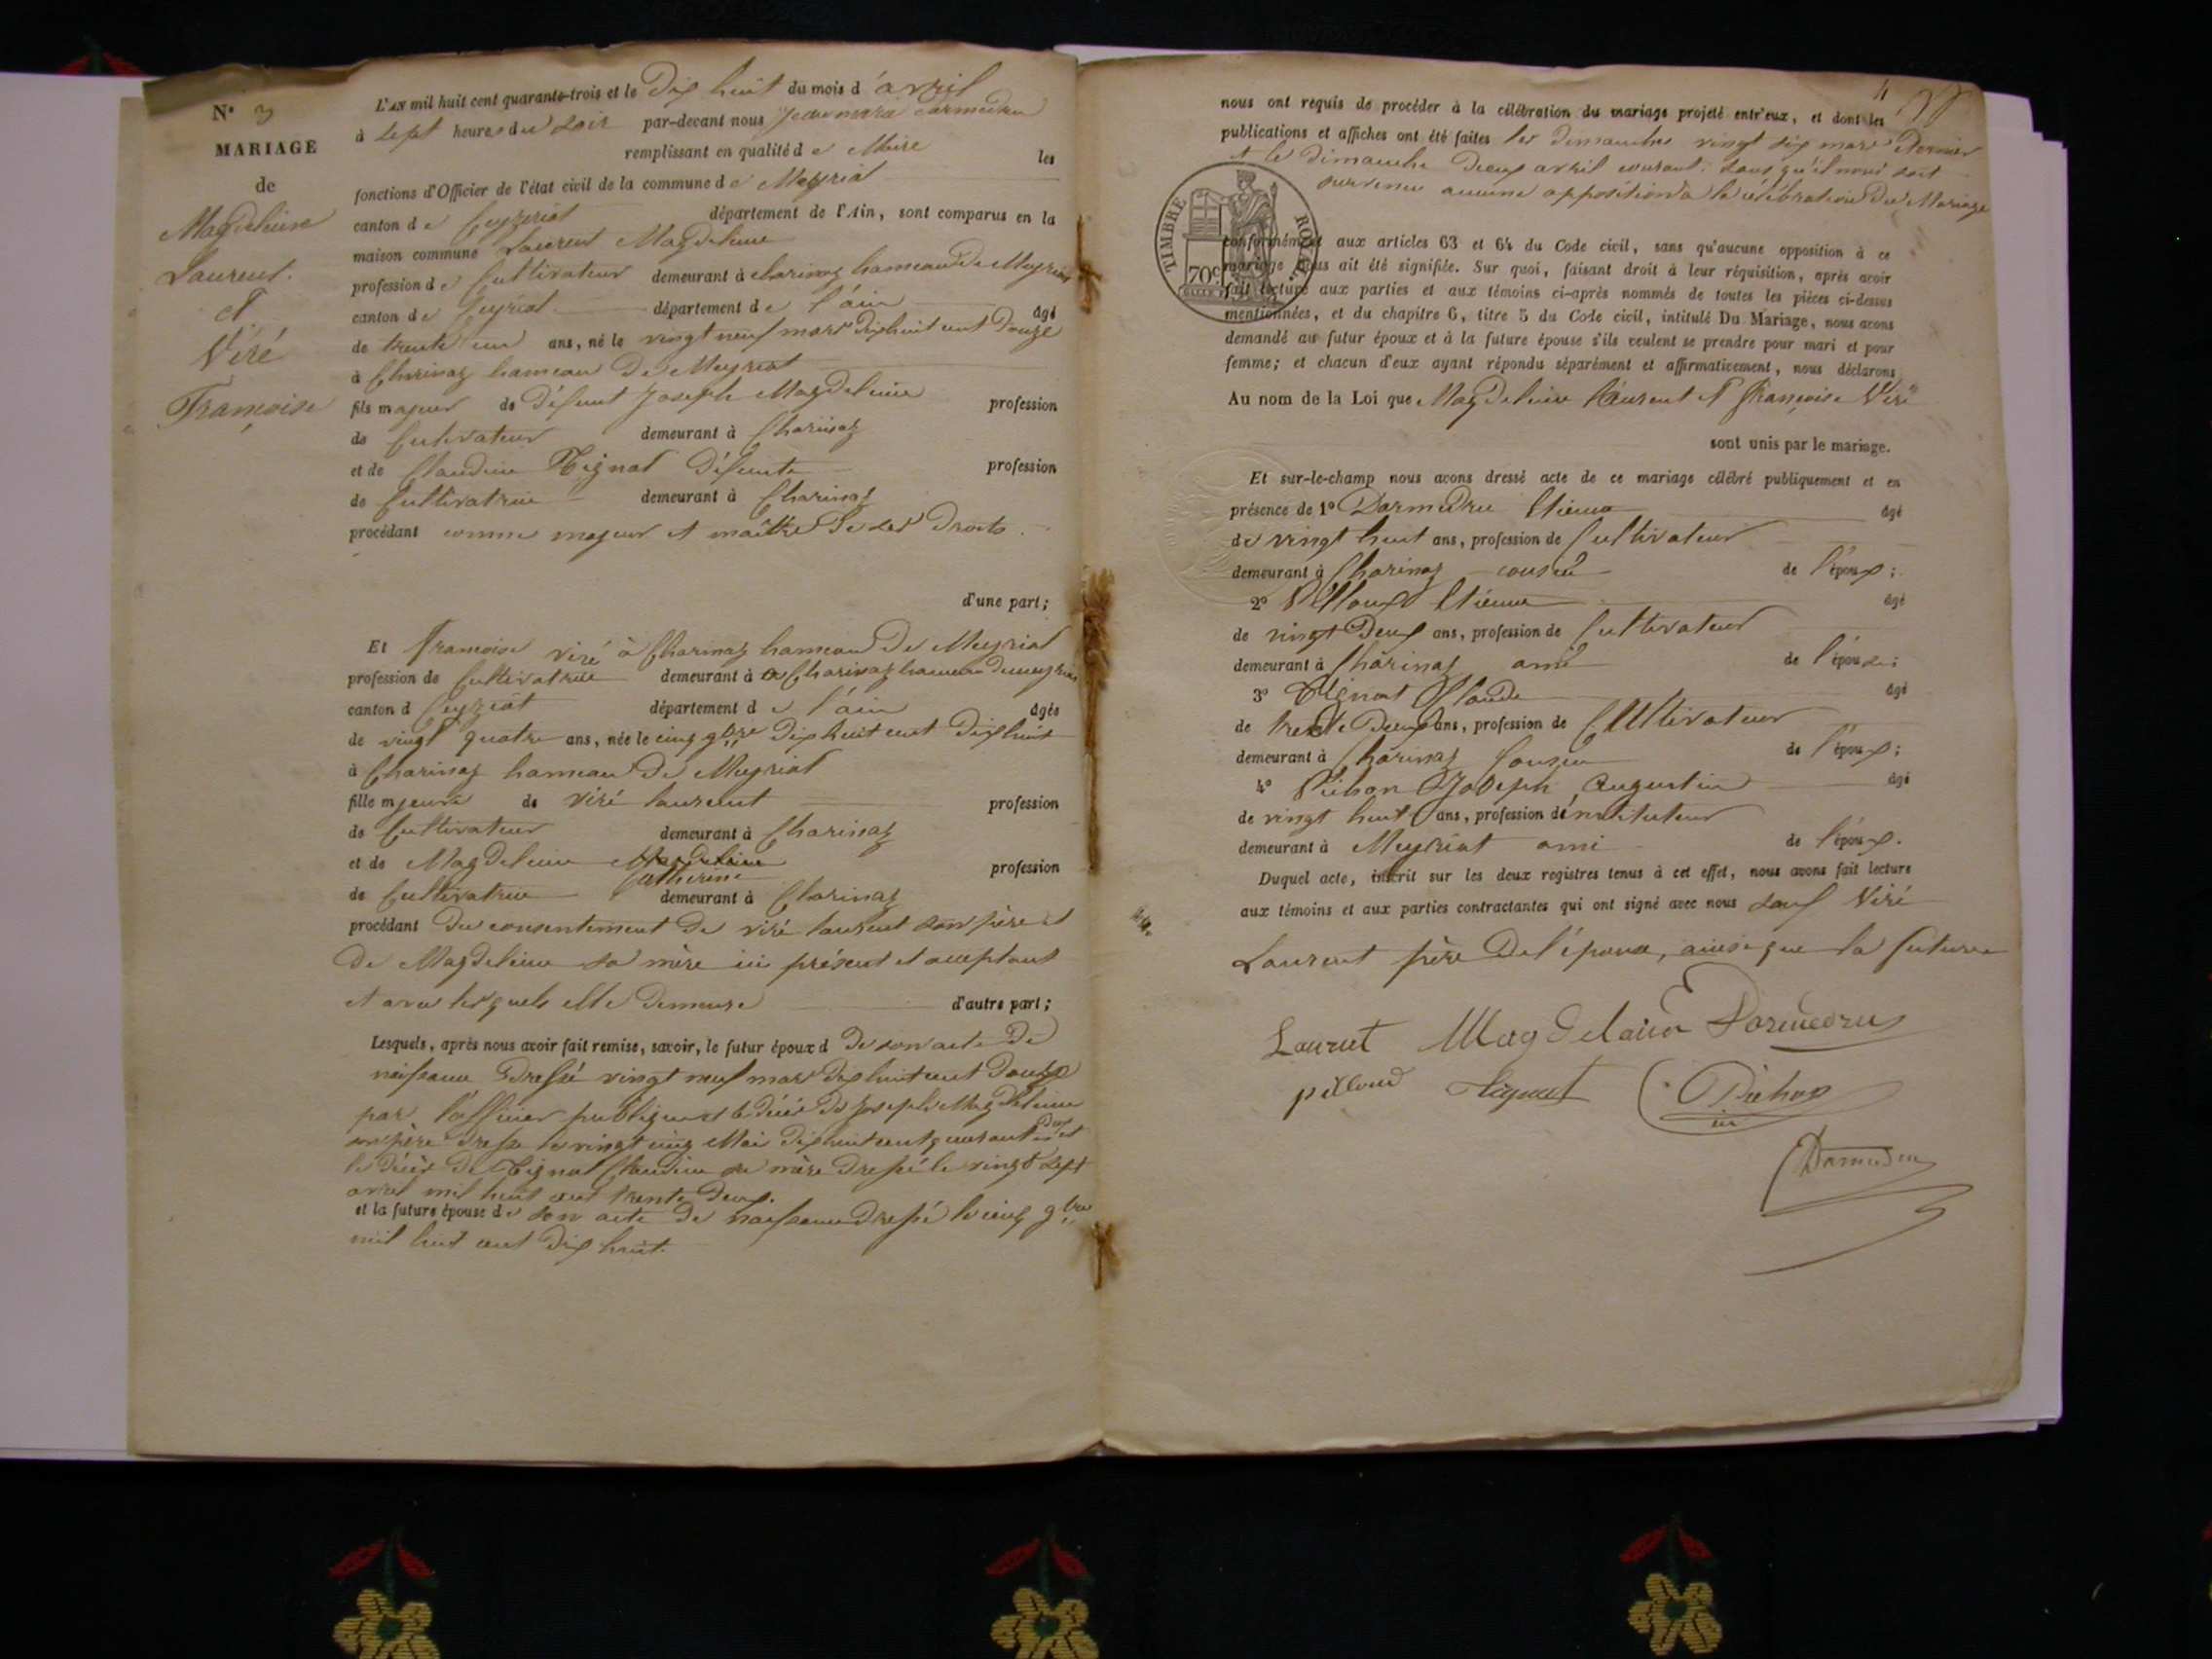 N° 3
MARIAGE
de
Magdeleine
Laurent.
et
Viré
Françoise
L'AN mil huit cent quarante-trois et le Dix huit du mois d'avril
à sept heures du soir par-devant nous Jean marie Darmedru
remplissant en qualité de Maire les
fonctions d'Officier de l'état civil de la commune de Meyriat
canton de Ceyzeriat département de l'Ain, sont comparus en la
maison commune Laurent Magdeleine
profession de Cultivateur demeurant à charinaz hameau De Meyriat
canton de Ceyzeriat département de l'ain âgé
de trente un ans, né le vingt neuf mars dix huit cent Douze
à Charinaz hameau De Meyriat
fils majeur de Défunt Joseph Magdeleine profession
de Cultivateur demeurant à Charinaz
et de Claudine Tignat Défunte profession
de Cultivatrice demeurant à Charinaz
procédant comme majeur et maître De ses Droits.
d'une part;
Et Francoise viré à Charinaz hameau De Meyriat
profession de Cultivatrice demeurant à Charinaz hameau de meyriat
canton d Ceyziat département de l'ain âgée
de vingt quatre ans, née le cinq 9bre Dix huit cent Dix huit
à Charinaz hameau De Meyriat
fille mjeure de Viré laurent profession
de Cultivateur demeurant à Charinaz
et de Magdeleine Magdeleine profession
Catherine
de Cultivatrice demeurant à Charinaz
procédant Du consentement De viré laurent son père et
De Magdeleine sa mère ici présent et acceptant
et avec lesquels elle Demeure d'autre part;
Lesquels, après nous avoir fait remise, savoir, le futur époux d De son acte De
naissance Dressé vingt neuf mars Dix huit cent Douze
par l'officier publique et le Décès De Joseph Magdeleine
son père Dressé le vingt cinq Mai Dix huit cent quarante Deux et
le Décès De Tignat Claudine sa mère Dressé le vingt sept
avril mil huit cent trente Deux.
et la future épouse de son acte De naissance Dressé le cinq 9bre
mil huit cent Dix huit.
4
nous ont requis de procéder à la célébration du mariage projeté entr'eux, et dont les
publications et affiches ont été faites les Dimanches vingt six mars Dernier
et le Dimanche Deux avril courant. sans qu'il nous soit
survenue aucune opposition à la célébration Du Mariage
TIMBRE ROYAL
70c
conformément aux articles 63 et 64 du Code civil, sans qu'aucune opposition à ce
mariage nous ait été signifiée. Sur quoi, faisant droit à leur réquisition, après avoir
fait lecture aux parties et aux témoins ci-après nommés de toutes les pièces ci-dessus
mentionnées, et du chapitre 6, titre 5 du Code civil, intitulé Du Mariage, nous avons
demandé au futur époux et à la future épouse s'ils veulent se prendre pour mari et pour
femme; et chacun d'eux ayant répondu séparément et affirmativement, nous déclarons
Au nom de la Loi que Magdeleine Laurent et Françoise Viré
sont unis par le mariage.
Et sur-le-champ nous avons dressé acte de ce mariage célébré publiquement et en
présence de 1° Darmedru Etienne âgé
de vingt huit ans, profession de Cultivateur
demeurant à Charinaz cousin de l'époux;
2° Pilloux Etienne âgé
de vingt Deux ans, profession de Cultivateur
demeurant à Charinaz ami de l'épouse;
3° Tignat Claude âgé
de trente Deux ans, profession de Cultivateur
demeurant à Charinaz Cousin de l'époux;
4° Pichon Joseph Augustin âgé
de vingt huit ans, profession d'instituteur
demeurant à Meyriat ami de l'époux.
Duquel acte, inscrit sur les deux registres tenus à cet effet, nous avons fait lecture
aux témoins et aux parties contractantes qui ont signé avec nous sauf Viré
Laurent père De l'épouse, ainsi que la future
Laurent Magdelaine Darmedru
pilloud Tignat Pichon
Darmedru